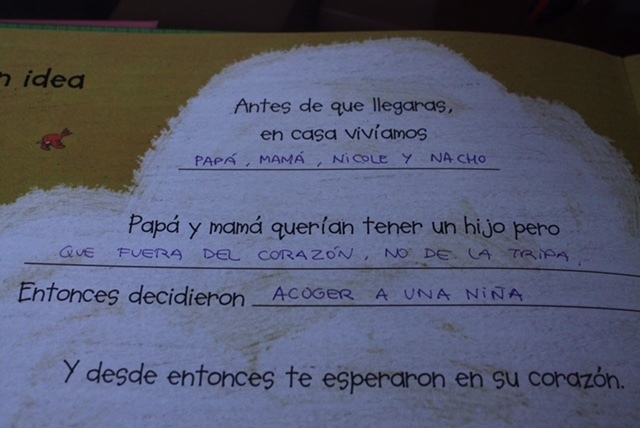 n idea
Antes de que llegaras,
en casa vivíamos
PAPÁ, MAMÁ, NICOLE Y NACHO
Papá y mamá querían tener un hijo pero
QUE FUERA DEL CORAZÓN, NO DE LA TRIPA.
Entonces decidieron ACOGER A UNA NIÑA
Y desde entonces te esperaron en su corazón.